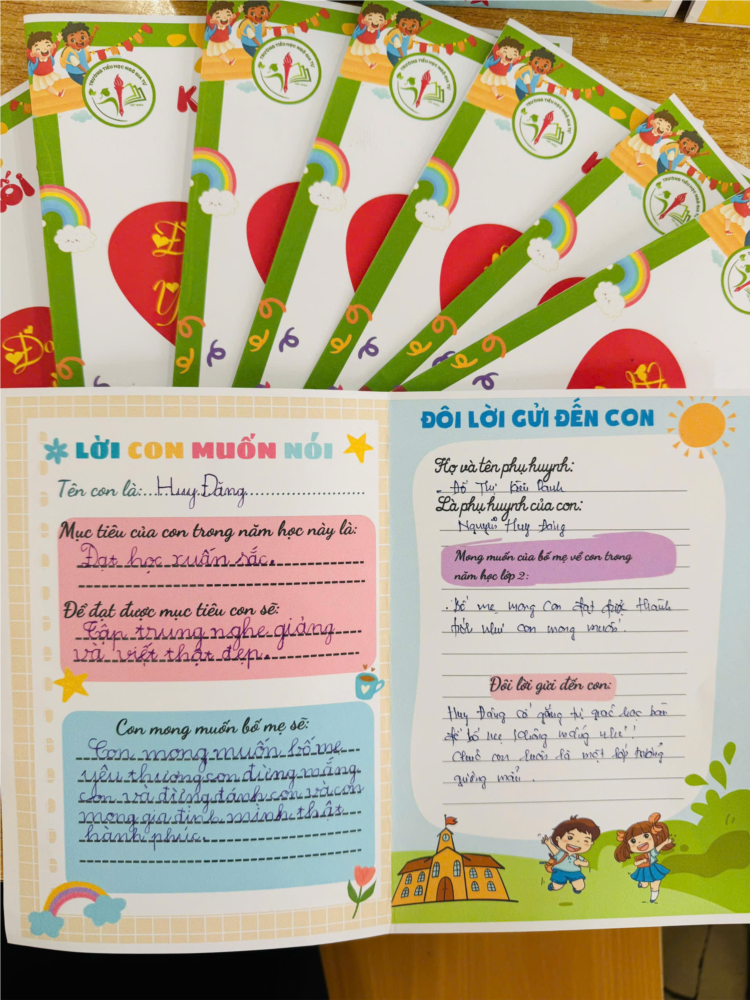 TRƯỜNG TIỂU HỌC NGÔ GIA TỰ
TRƯỜNG TIỂU HỌC NGÔ GIA TỰ
TRƯỜNG TIỂU HỌC NGÔ GIA TỰ
TRƯỜNG TIỂU HỌC NGÔ GIA TỰ
K
LỜI CON MUỐN NÓI
Tên con là: Huy Đăng
Mục tiêu của con trong năm học này là:
Đạt học xuấn sắc.
Để đạt được mục tiêu con sẽ:
Tập trung nghe giảng
và viết thật đẹp.
Con mong muốn bố mẹ sẽ:
Con mong muốn bố mẹ
yêu thương con đừng mắng
con và đừng đánh con và con
mong gia đình mình thật
hành phúc.
ĐÔI LỜI GỬI ĐẾN CON
Họ và tên phụ huynh:
Đỗ Thị Kiều Oanh
Là phụ huynh của con:
Nguyễn Huy Đăng
Mong muốn của bố mẹ về con trong
năm học lớp 2:
Bố mẹ mong con đạt được thành
như con mong muốn.
Đôi lời gửi đến con:
Huy Đăng cố gắng tự giác học bài
để bố mẹ không mắng nhé!
Chúc con luôn là một lớp trưởng
gương mẫu.